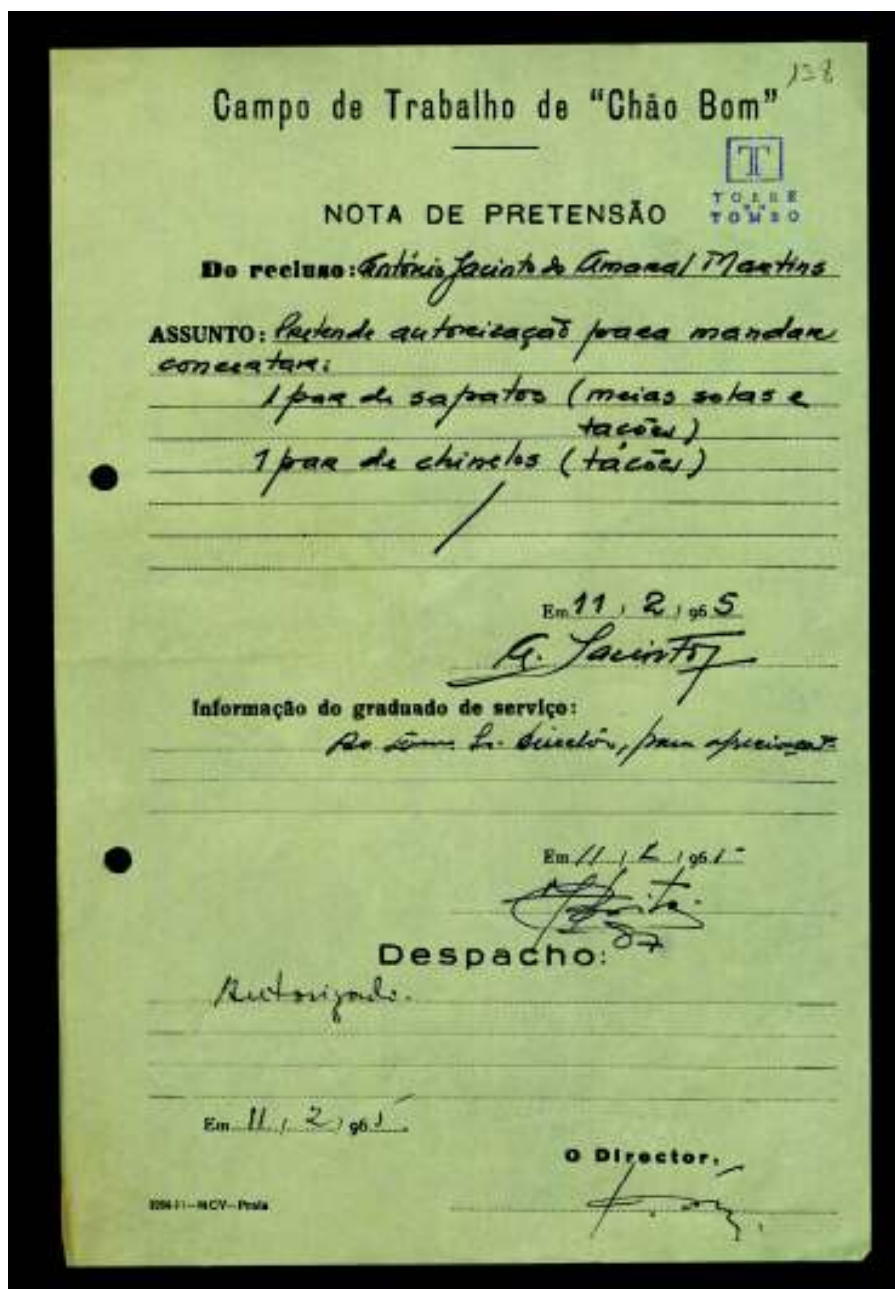 138
Campo de Trabalho de "Chão Bom"
T
TORRE
DO
TOMBO
NOTA DE PRETENSÃO
Do recluso: António Jacinto do Amaral Martins
ASSUNTO: Pretende autorização para mandar
concertar:
1 par de sapatos (meias solas e
tacões)
1 par de chinelos (tacões)
Em 11 / 2 / 965
A. Jacinto
Informação do graduado de serviço:
Ao Exmo Sr. Director, para apreciação
Em 11 / 2 / 965
Despacho:
Autorizado.
Em 11 / 2 / 965
O Director,